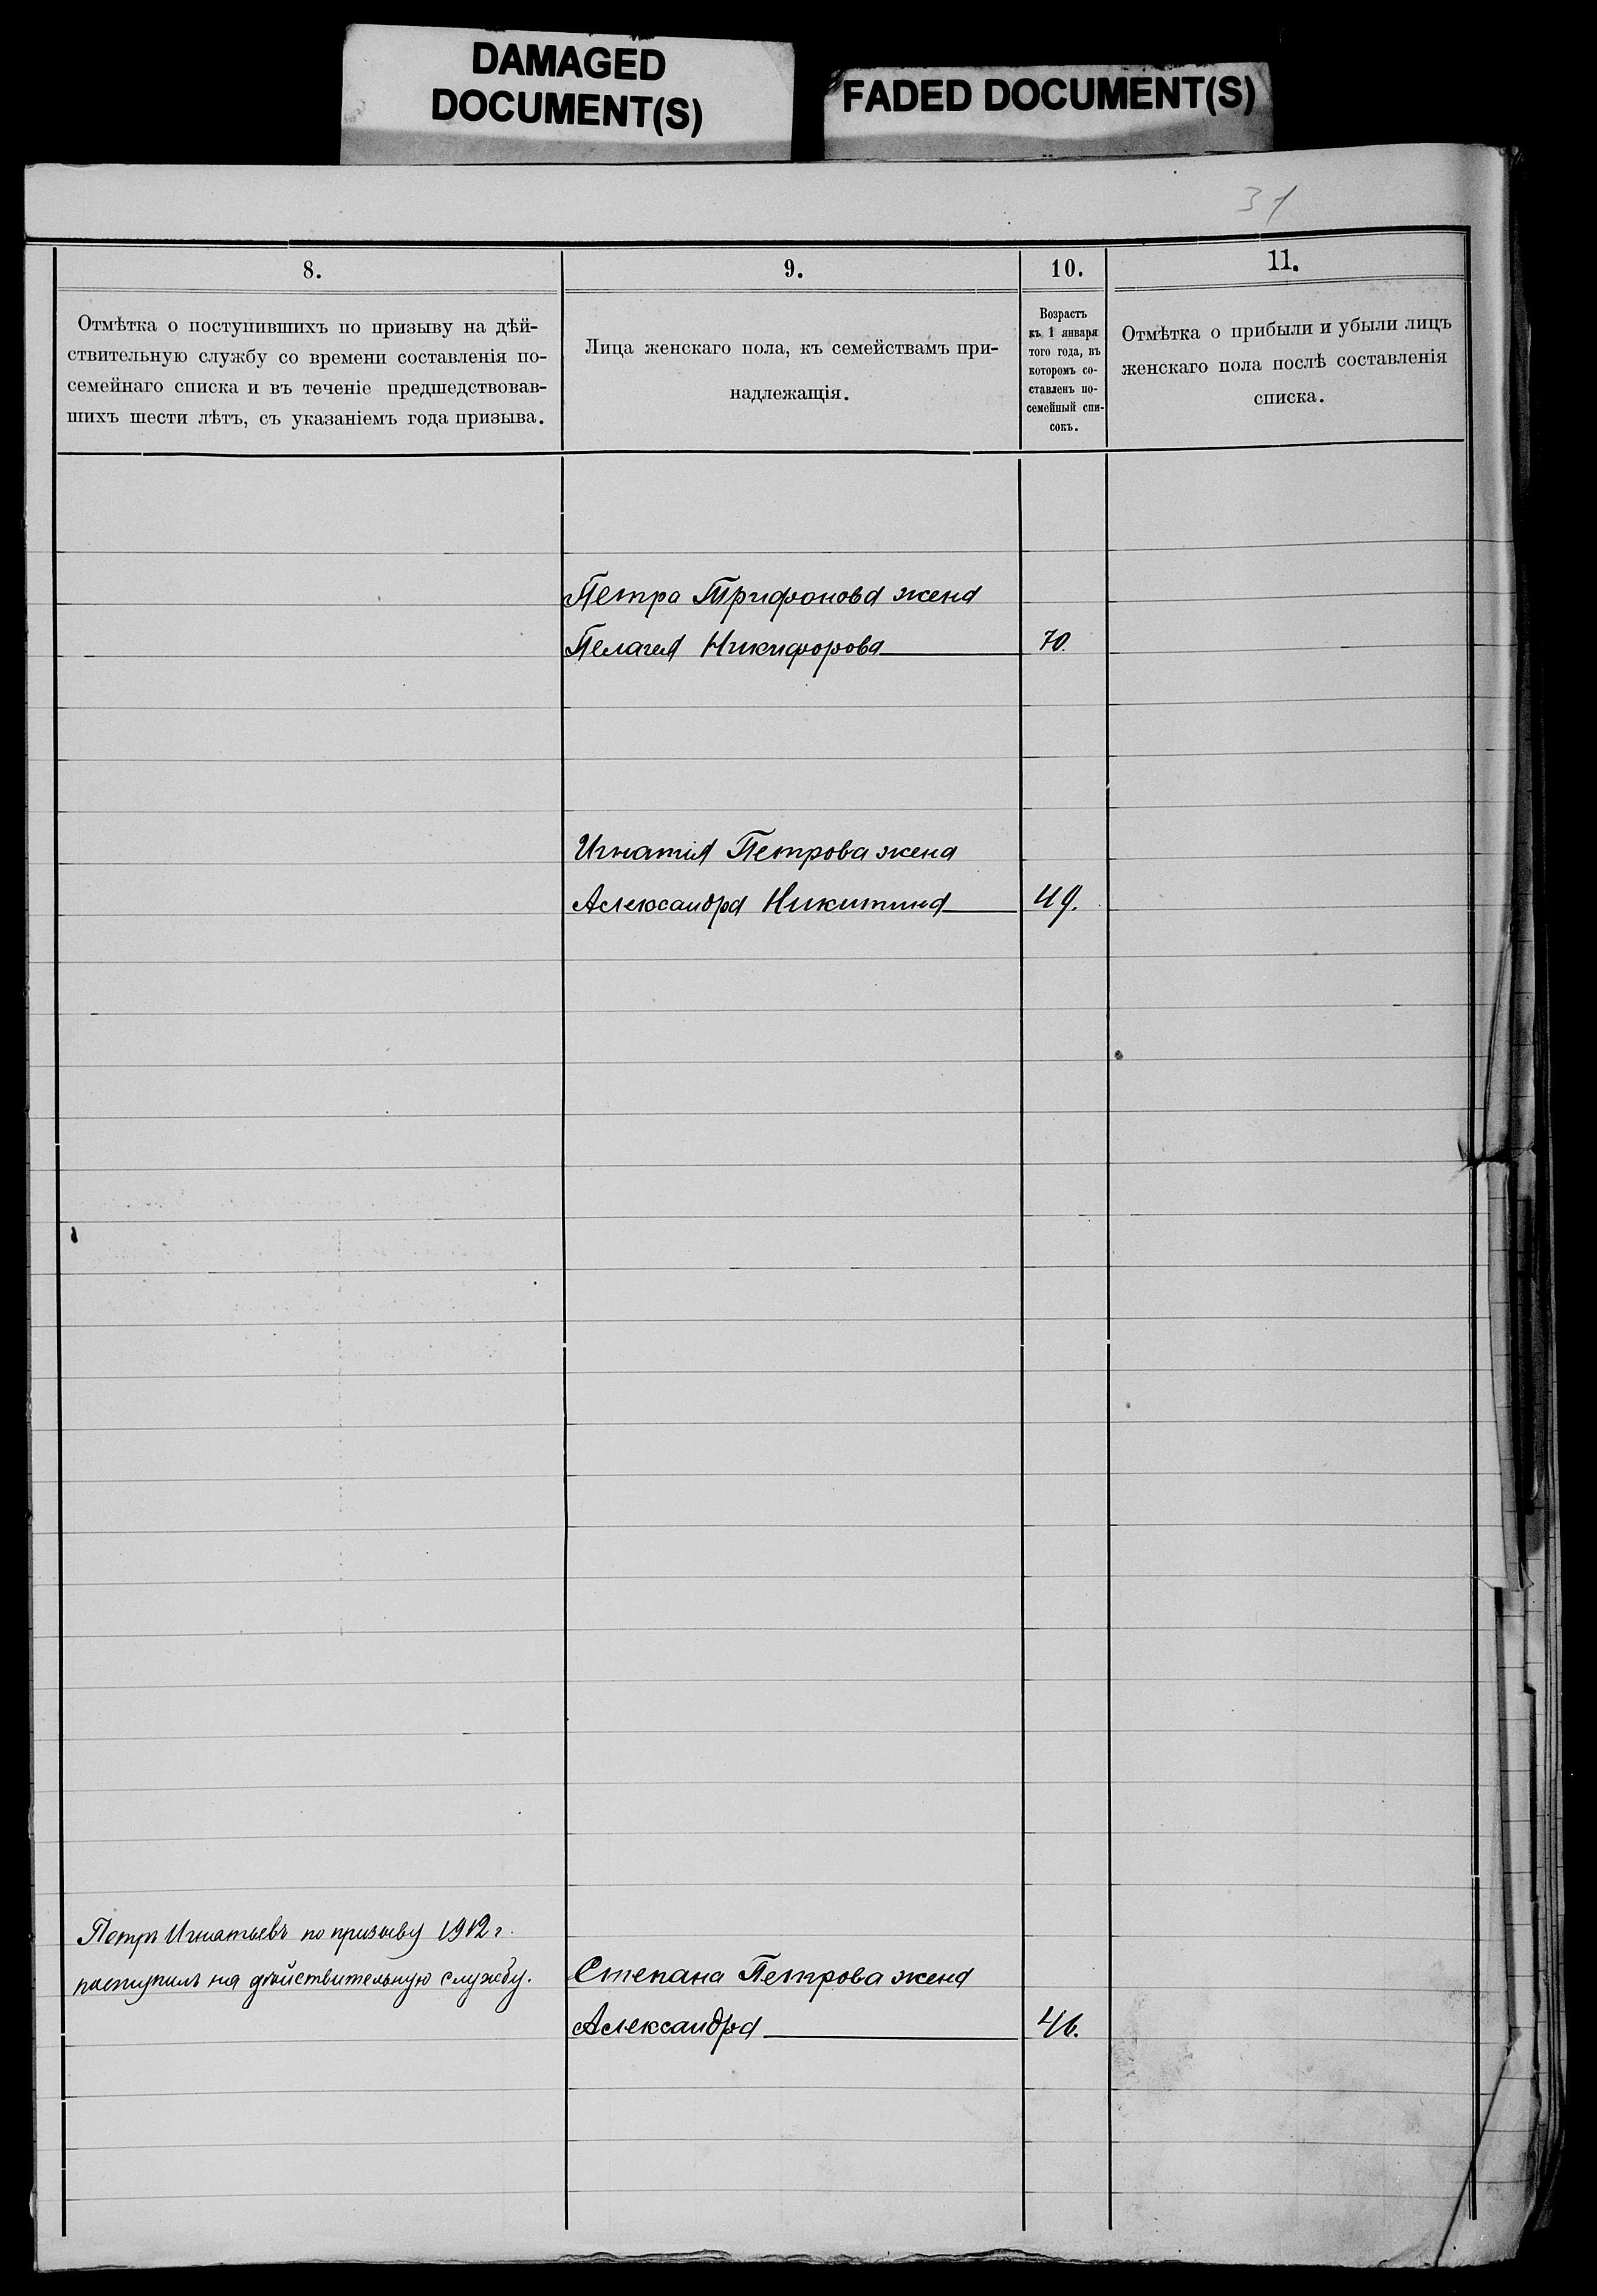 DAMAGED
DOCUMENT(S)
FADED DOCUMENT(S)
31
8.
9.
10.
11.
Отмѣтка о поступившихъ по призыву на дѣй-
ствительную службу со времени составленія по-
семейнаго списка и въ теченіе предшедствовав-
шихъ шести лѣтъ, съ указаніемъ года призыва.
Лица женскаго пола, къ семействамъ при-
надлежащія.
Возрастъ
къ 1 января
того года, въ
которомъ со-
ставленъ по-
семейный спи-
сокъ.
Отмѣтка о прибыли и убыли лицъ
женскаго пола послѣ составленія
списка.
Петра Трифонова жена
Пелагея Никифорова 70.
Игнатія Петрова жена
Александра Никитина 49.
Петръ Игнатьевъ по призыву 1912 г.
поступилъ на дѣйствительную службу.
Степана Петрова жена
Александра 46.